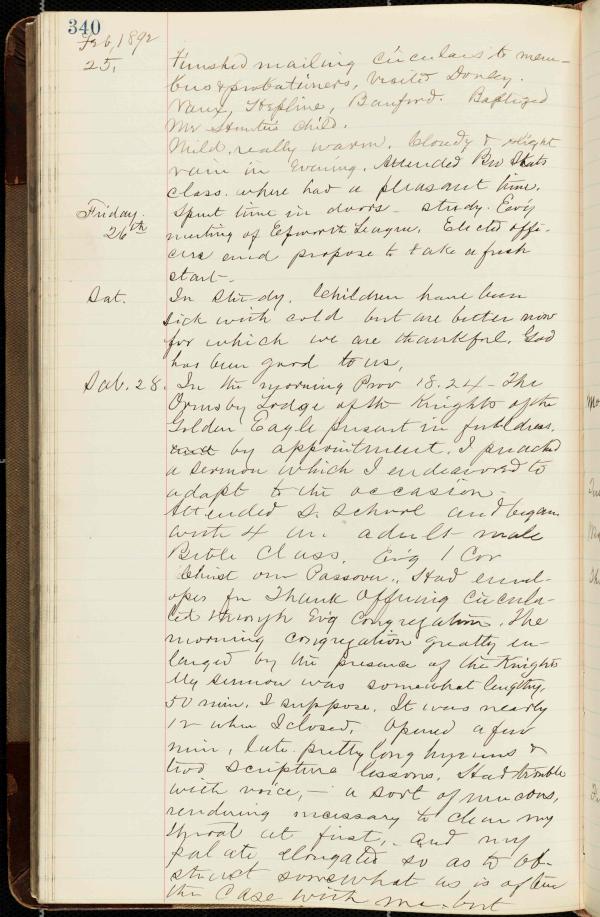 340
Feb, 1892
25, Finished mailing circulars to mem-
bers & probationers, visited Donley.
Vaux, Hepline, Banford. Baptized
Mr Hunter's child.
Mild, really warm. Cloudy & slight
rain in evening. Attended Bro
class. where had a pleasant time.
Friday. Spent time in doors - study. Ev'g
26th meeting of Epworth League. Elected offi-
cers and propose to take a fresh
start-
Sat. In study. Children have been
sick with cold but are better now
for which we are thankful. God
has been good to us,
Sab. 28. In the morning Prov 18.24 - The
Ormsby Lodge of the Knights of the
Golden Eagle present in full dress.
and by appointment. I preached
a sermon which I endeavored to
adapt to the occasion.
Attended S. School and began
with 4 an adult male
Bible Class. Ev'g 1 Cor
Christ our Passover,. Had envel-
opes for Thank Offering circula-
ted through Ev'g Congregation. The
morning congregation greatly en-
larged by the presence of the Knights
My sermon was somewhat lengthy,
50 min. I suppose. It was nearly
12 when I closed. Opened a few
min, late. pretty long hymns &
two scripture lessons. Had trouble
with voice, - a sort of mucous,
rendering necessary to clear my
throat at first, - and my
palate elongated so as to ob-
struct somewhat as is often
the case with me. but